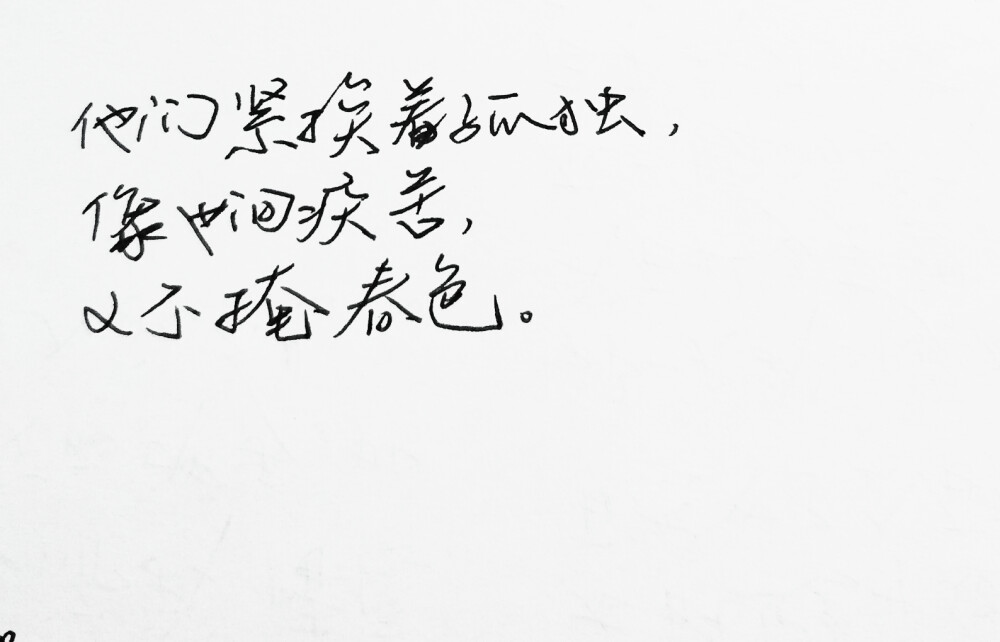 他们紧挨着孤独,
像世间疾苦,
又不掩春色。